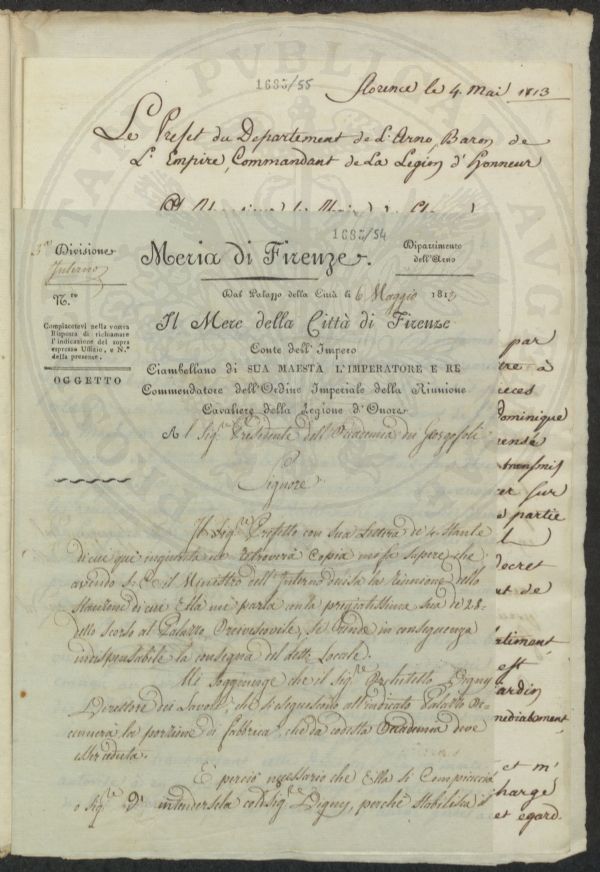 1683/55
Florence le 4 Mai 1813
Le Prefet du Departement de L'Arno, Baron de
L'Empire, Commandant de La Legion d'Honneur
1683/54
3.a Divisione
Interno
N.ro
Compiacetevi nella vostra
Risposta di richiamare
l'indicazione del sopra
espresso Uffizio, e N.o
della presente.
OGGETTO
Meria di Firenze.
Dipartimento
dell'Arno
Dal Palazzo della Città li 6 Maggio 1813
Il Mere della Città di Firenze
Conte dell'Impero
Ciambellano di SUA MAESTA L'IMPERATORE E RE
Commendatore dell'Ordine Imperiale della Riunione
Cavaliere della Legione d'Onore
Al Sig.re Presidente dell'Accademia dei Georgofili
Signore
Il Sig.re Prefetto con sua Lettera de' 4 Stante
di cui qui inquinta ne ritroverà Copia mi fa sapere che
avendo S. E. il Ministro dell'Interno decisa la riunione dello
Stanzone di cui Ella mi parla con la pregiatissima sua de' 28
dello scorso al Palazzo Arcivescovile, si rende in conseguenza
indispensabile la consegna del detto Locale.
Mi soggiunge che il Sig.re Architetto Digny
Direttore dei Lavori, che si eseguiscono all'indicato Palazzo
la porzione di fabbrica, che da codesta Accademia deve
È perciò necessario che Ella si compiaccia
o Sig.re di intendersela col Sig.re Digny, perchè stabilisca il
par
à
dominique
transmis
sur
partie
decret
de
est
jardin
immediatement
et m'
charge
et egard